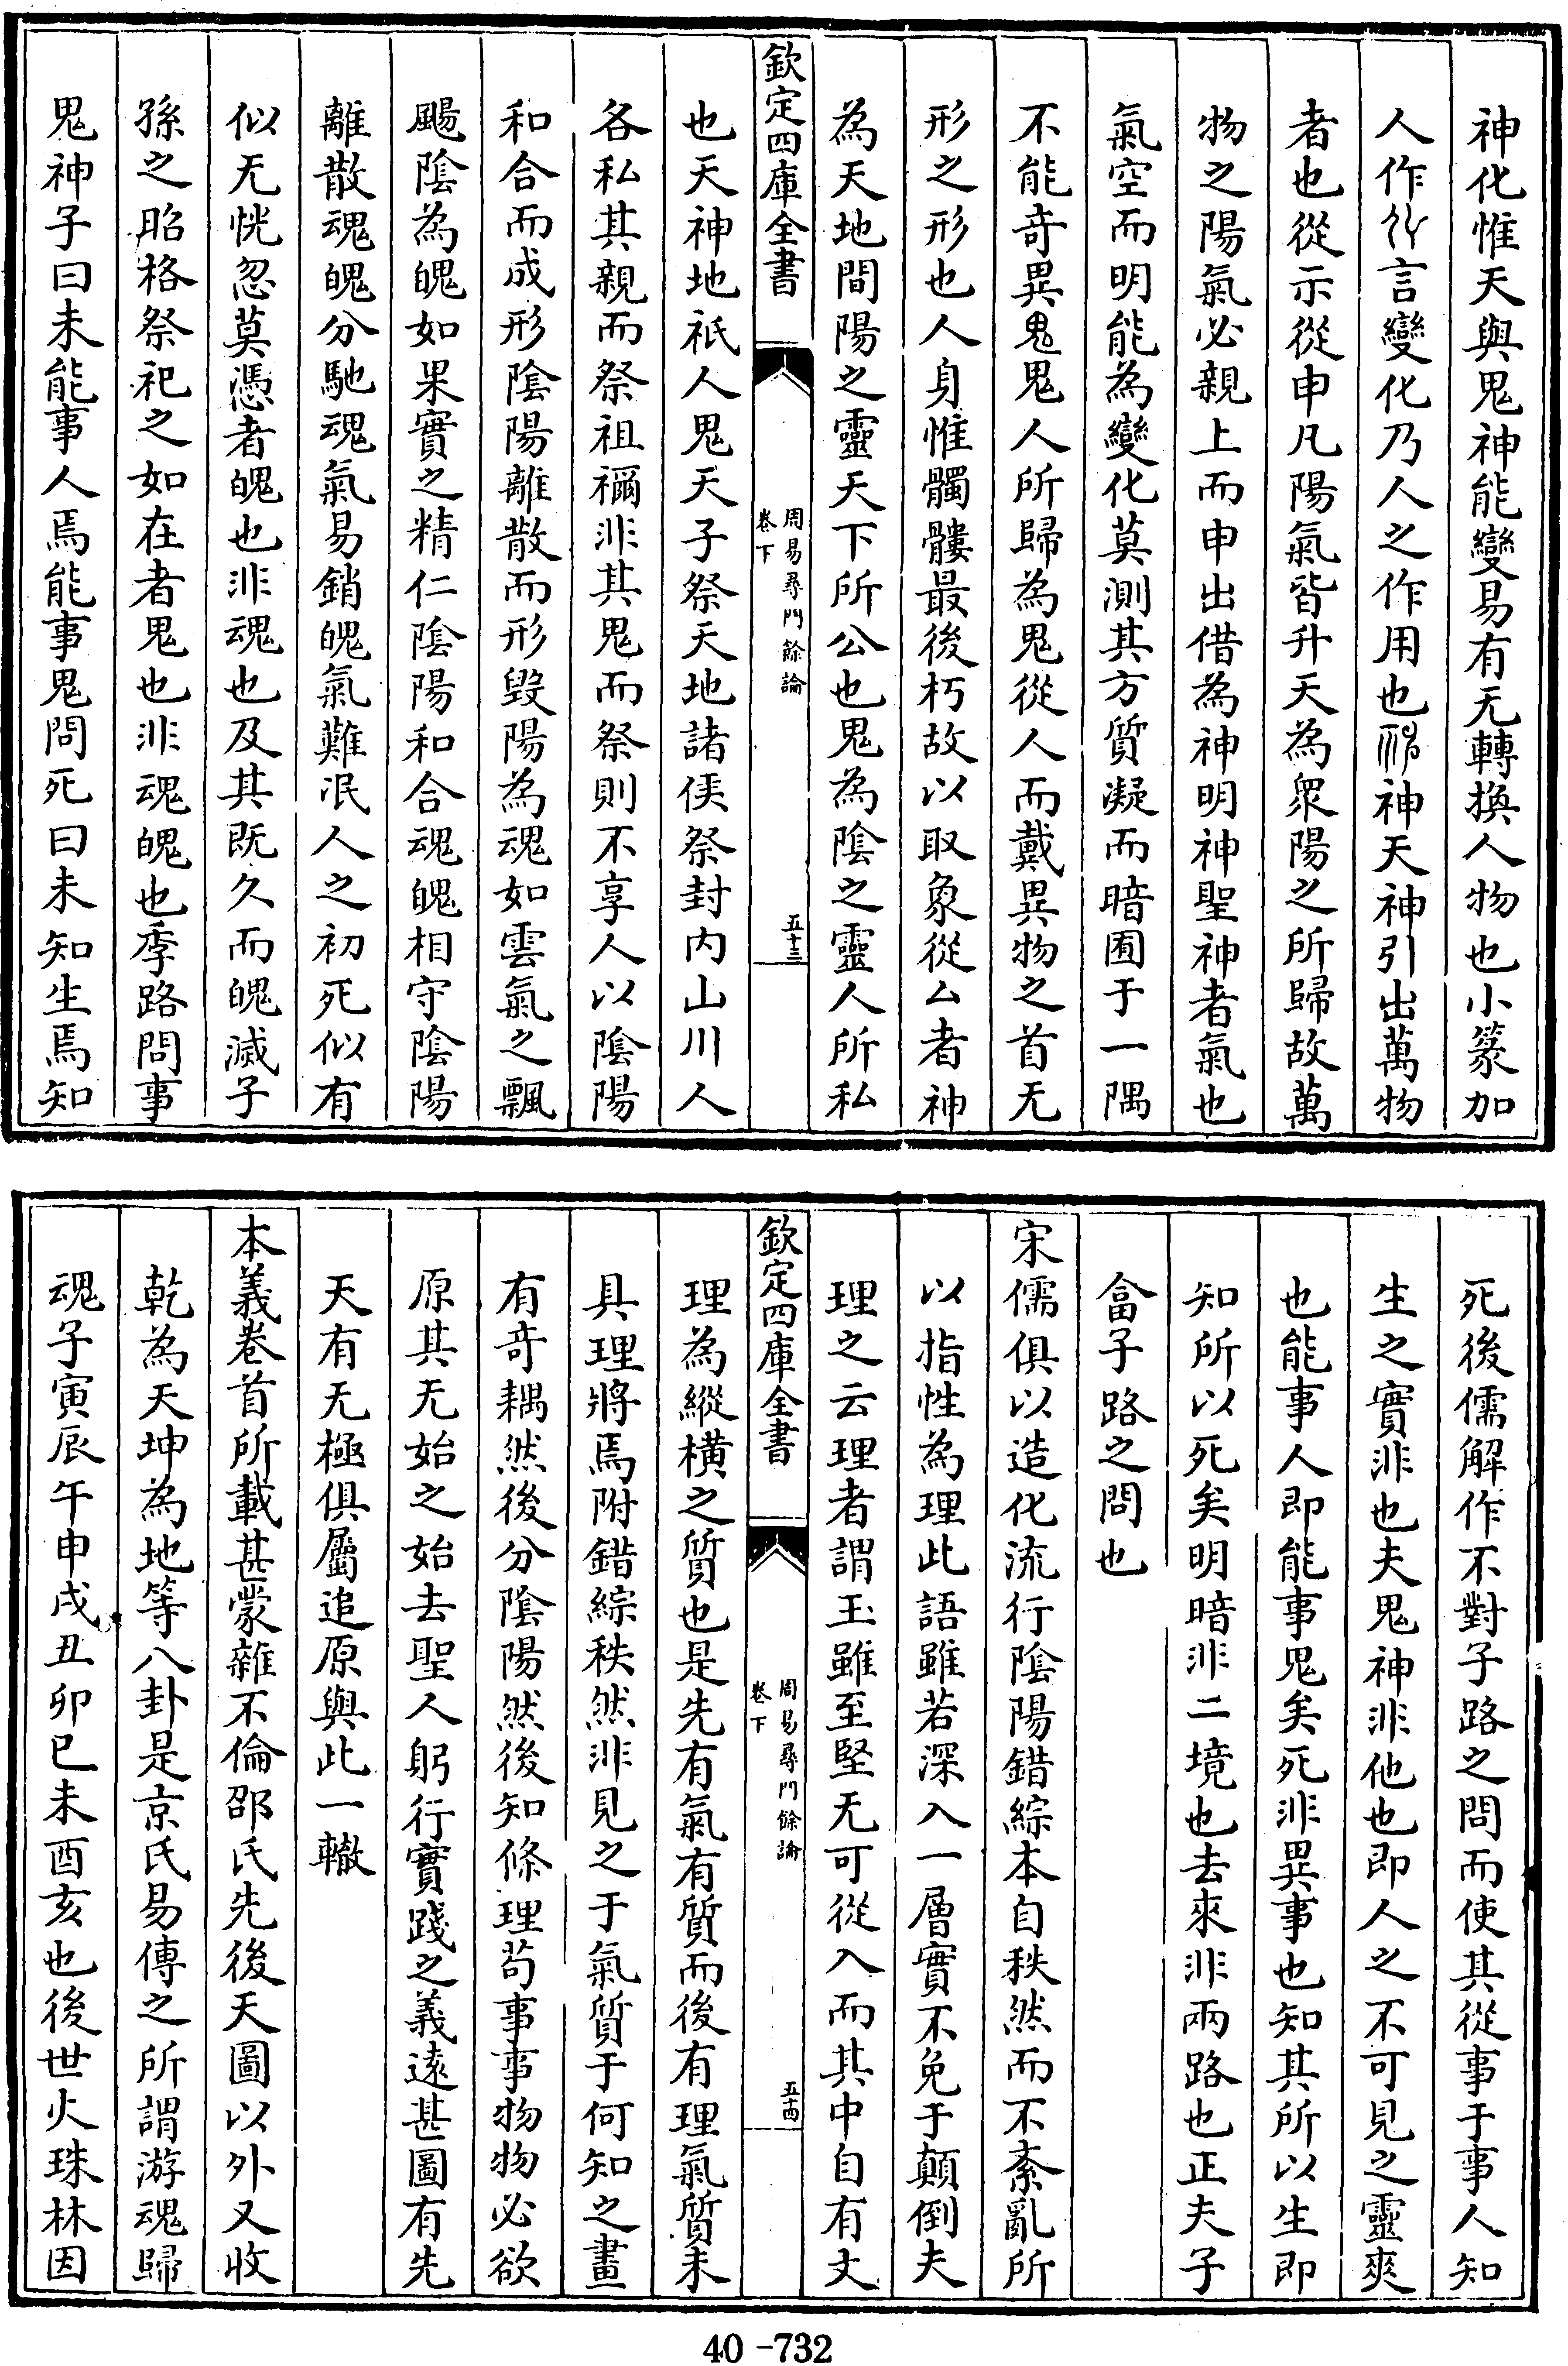 神化惟天與鬼神能變易有无轉換人物也小篆加
人作言變化乃人之作用也神天神引出萬物
者也從示從申凡陽氣皆升天為衆陽之所歸故萬
物之陽氣必親上而申出借為神明神聖神者氣也
氣空而明能為變化莫測其方質凝而暗囿于一隅
不能竒異鬼鬼人所歸為鬼從人而戴異物之首无
形之形也人身惟髑髏最後朽故以取象從厶者神
為天地間陽之靈天下所公也鬼為隂之靈人所私
欽定四庫全書
周易尋門餘論
卷下
五十三
也天神地祇人鬼天子祭天地諸侯祭封内山川人
各私其親而祭祖禰非其鬼而祭則不享人以隂陽
和合而成形隂陽離散而形毀陽為魂如雲氣之飄
颺隂為魄如果實之精仁隂陽和合魂魄相守隂陽
離散魂魄分馳魂氣易銷魄氣難泯人之初死似有
似无恍忽莫憑者魄也非魂也及其既久而魄滅子
孫之昭格祭祀之如在者鬼也非魂魄也季路問事
鬼神子曰未能事人焉能事鬼問死曰未知生焉知
死後儒解作不對子路之問而使其從事于事人知
生之實非也夫鬼神非他也即人之不可見之靈爽
也能事人即能事鬼矣死非異事也知其所以生即
知所以死矣明暗非二境也去來非兩路也正夫子
畣子路之問也
宋儒俱以造化流行隂陽錯綜本自秩然而不紊亂所
以指性為理此語雖若深入一層實不免于顛倒夫
理之云理者謂玉雖至堅无可從入而其中自有文
欽定四庫全書
周易尋門餘論
卷下
五十四
理為縱横之質也是先有氣有質而後有理氣質未
具理將焉附錯綜秩然非見之于氣質于何知之畫
有竒耦然後分隂陽然後知條理茍事事物物必欲
原其无始之始去聖人躬行實踐之義逺甚圖有先
天有无極俱屬追原與此一轍
本義卷首所載甚蒙雜不倫邵氏先後天圖以外又收
乾為天坤為地等八卦是京氏易傳之所謂游魂歸
魂子寅辰午申戌丑卯巳未酉亥也後世火珠林因
40-732